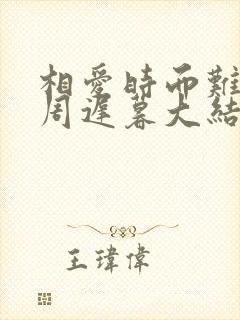 相愛時而難
周遲暮大結
王瑋偉